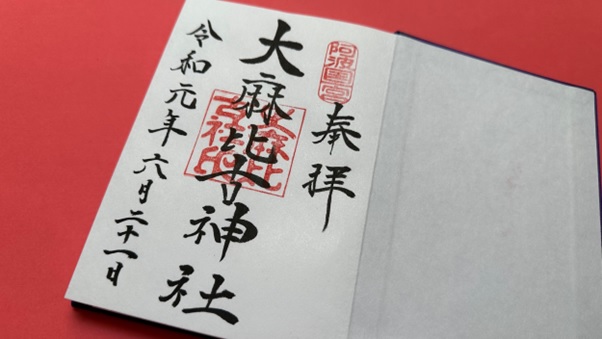 阿波國一宮
奉拝
大麻比古神社
大麻比
古社印
令和元年六月二十一日